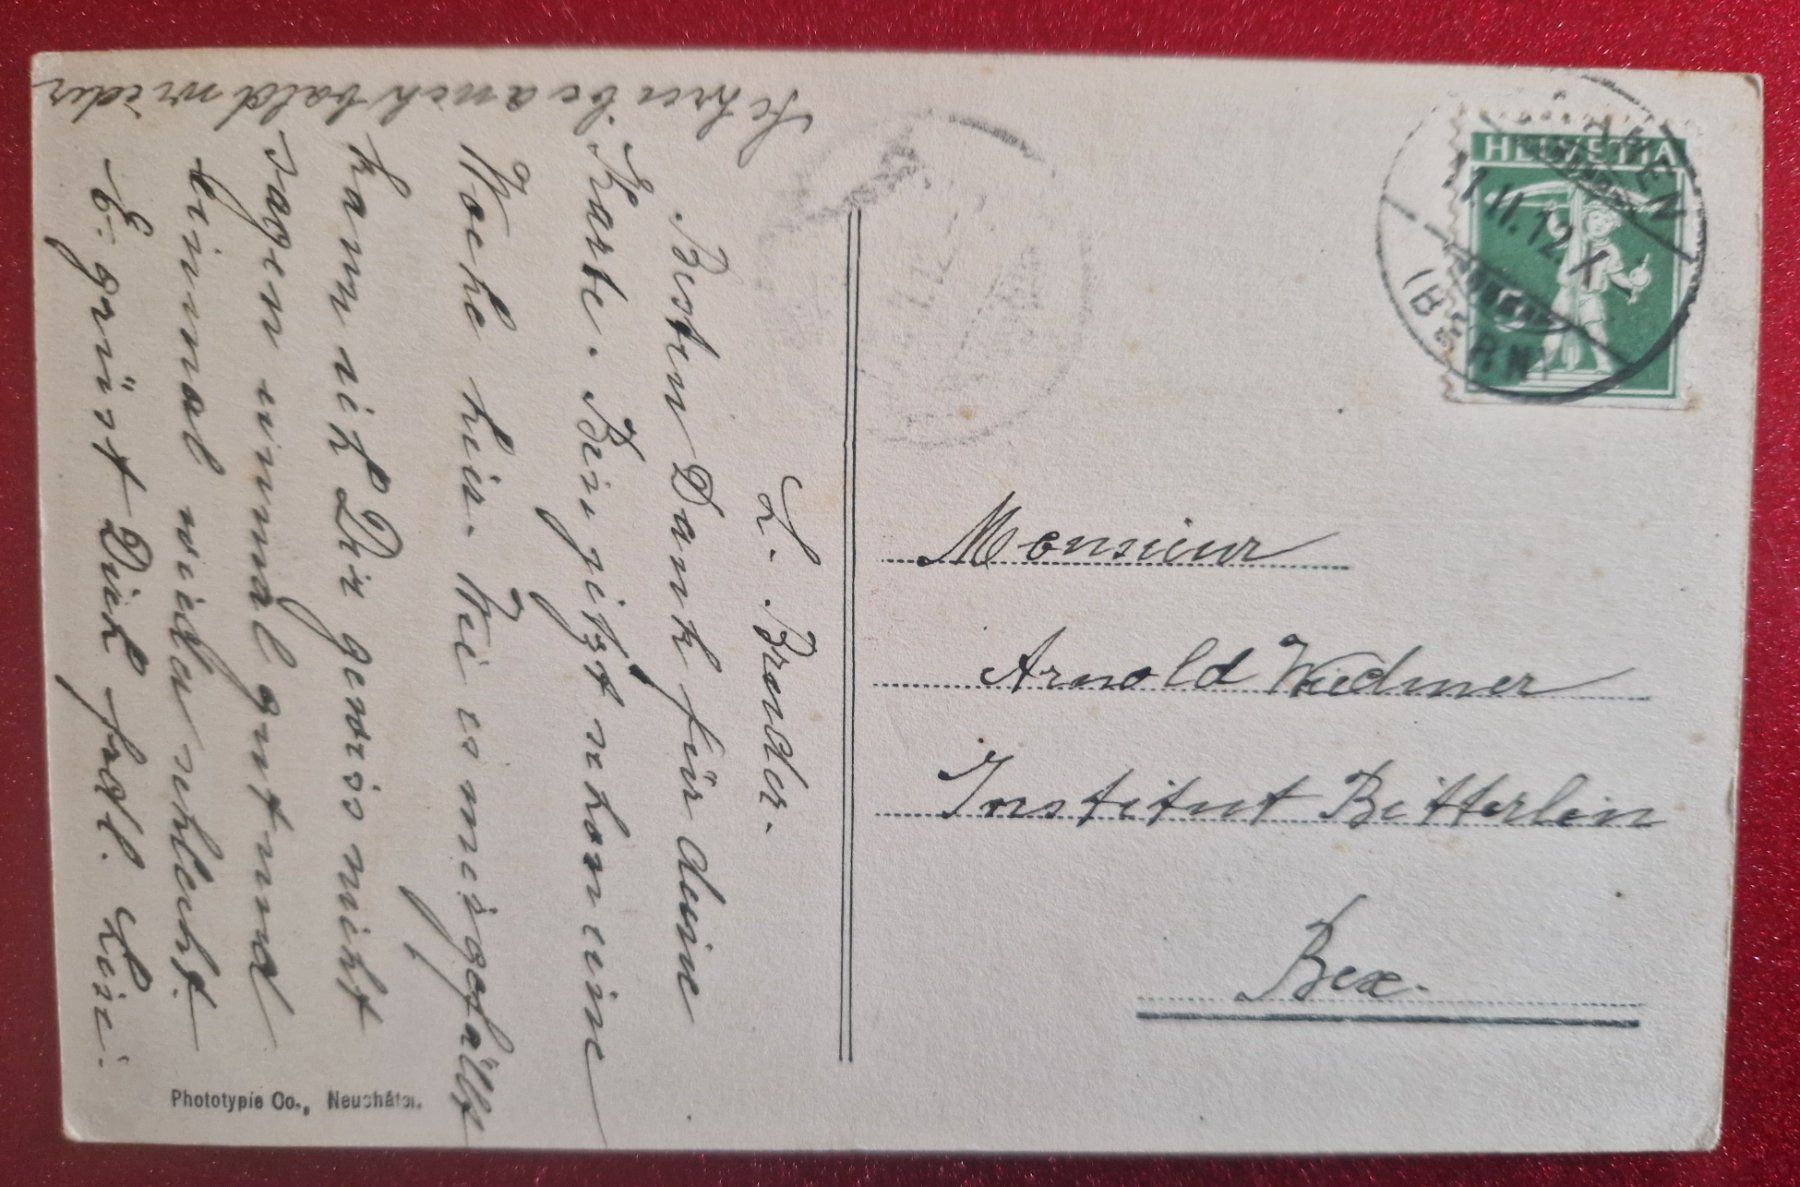 L. Bruder.
Besten Dank für deine
Karte. Bin jetzt schon eine
Woche hier. Wie es mir gefällt
kann ich Dir gewiss nicht
sagen einmal gut und
einmal wieder schlecht.
E. grüsst Dich frdl.
Schreibe auch bald wieder
Phototypie Co., Neuchâtel.
HELVETIA
5
1.II.12.X
(BERN)
Monsieur
Arnold Wiedmer
Institut Bitterlin
Bex.